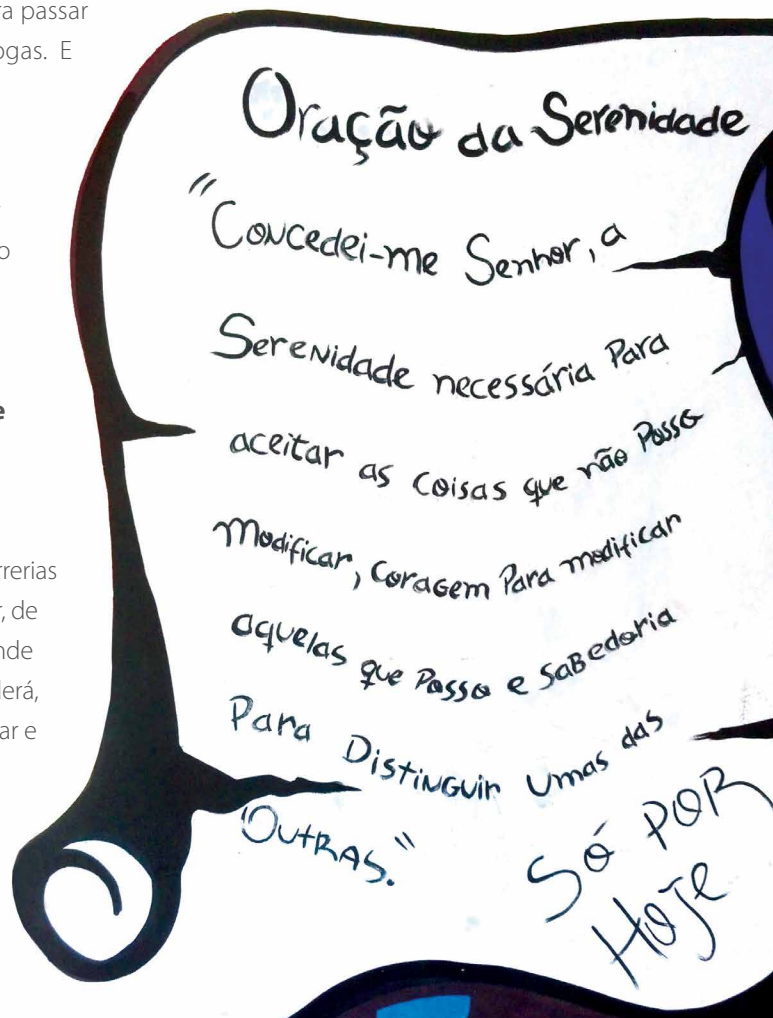 ra passar
ogas. E
o
e
rrerias
r, de
nde
derá,
ar e
Oração da Serenidade
"Concedei-me Senhor, a
Serenidade necessária Para
aceitar as coisas que não Posso
Modificar, Coragem Para modificar
aquelas que Posso e SaBedoria
Para Distinguir Umas das
OutRAS."
Só POR
Hoje